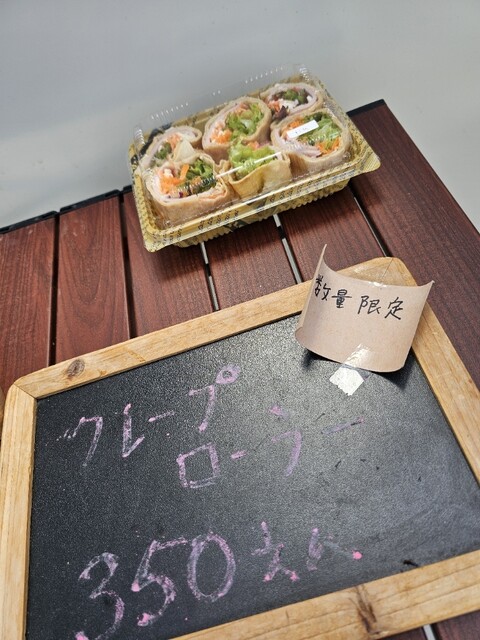 数量限定
クレープ
ローラー
350えん